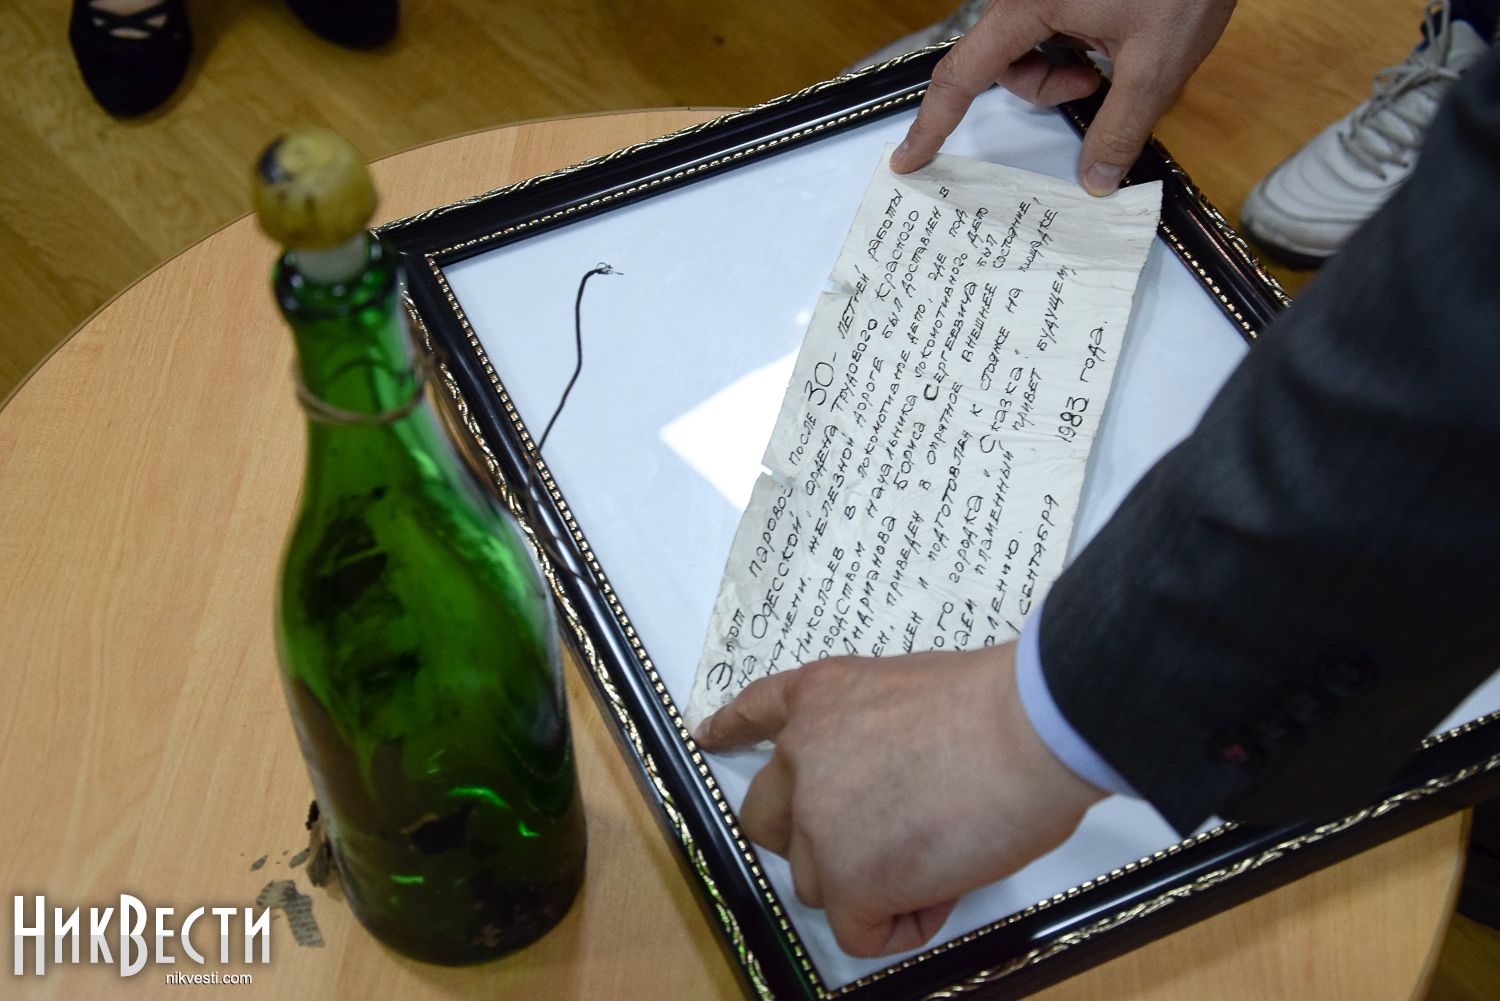 Этот паровоз после 30-летней работы
на Одесской, ордена Трудового Красного
намени, железной дороге был доставлен в
Николаев в локомотивное депо, где под
оводством начальника локомотивного депо
Андрианова Бориса Сергеевича был
ен приведен в опрятное внешнее состояние,
щен и подготовлен к стоянке на площадке
ого городка "Сказка".
аем пламенный привет будущему
лению.
сентября 1983 года.
НикВести
nikvesti.com